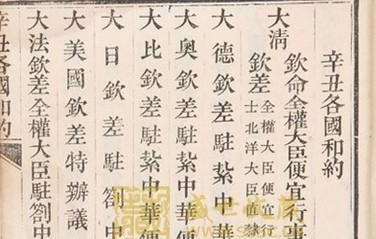 辛丑各國和約
大清
欽命全權大臣便宜行事
欽差
全權大臣便宜行
士北洋大臣直隸
大德欽差駐紮中華便
大奧欽差駐紮中華便
大比欽差駐紮中華
大日欽差駐劄中
大美國欽差特辦議
大法欽差全權大臣駐劄中
辛丑各國和約